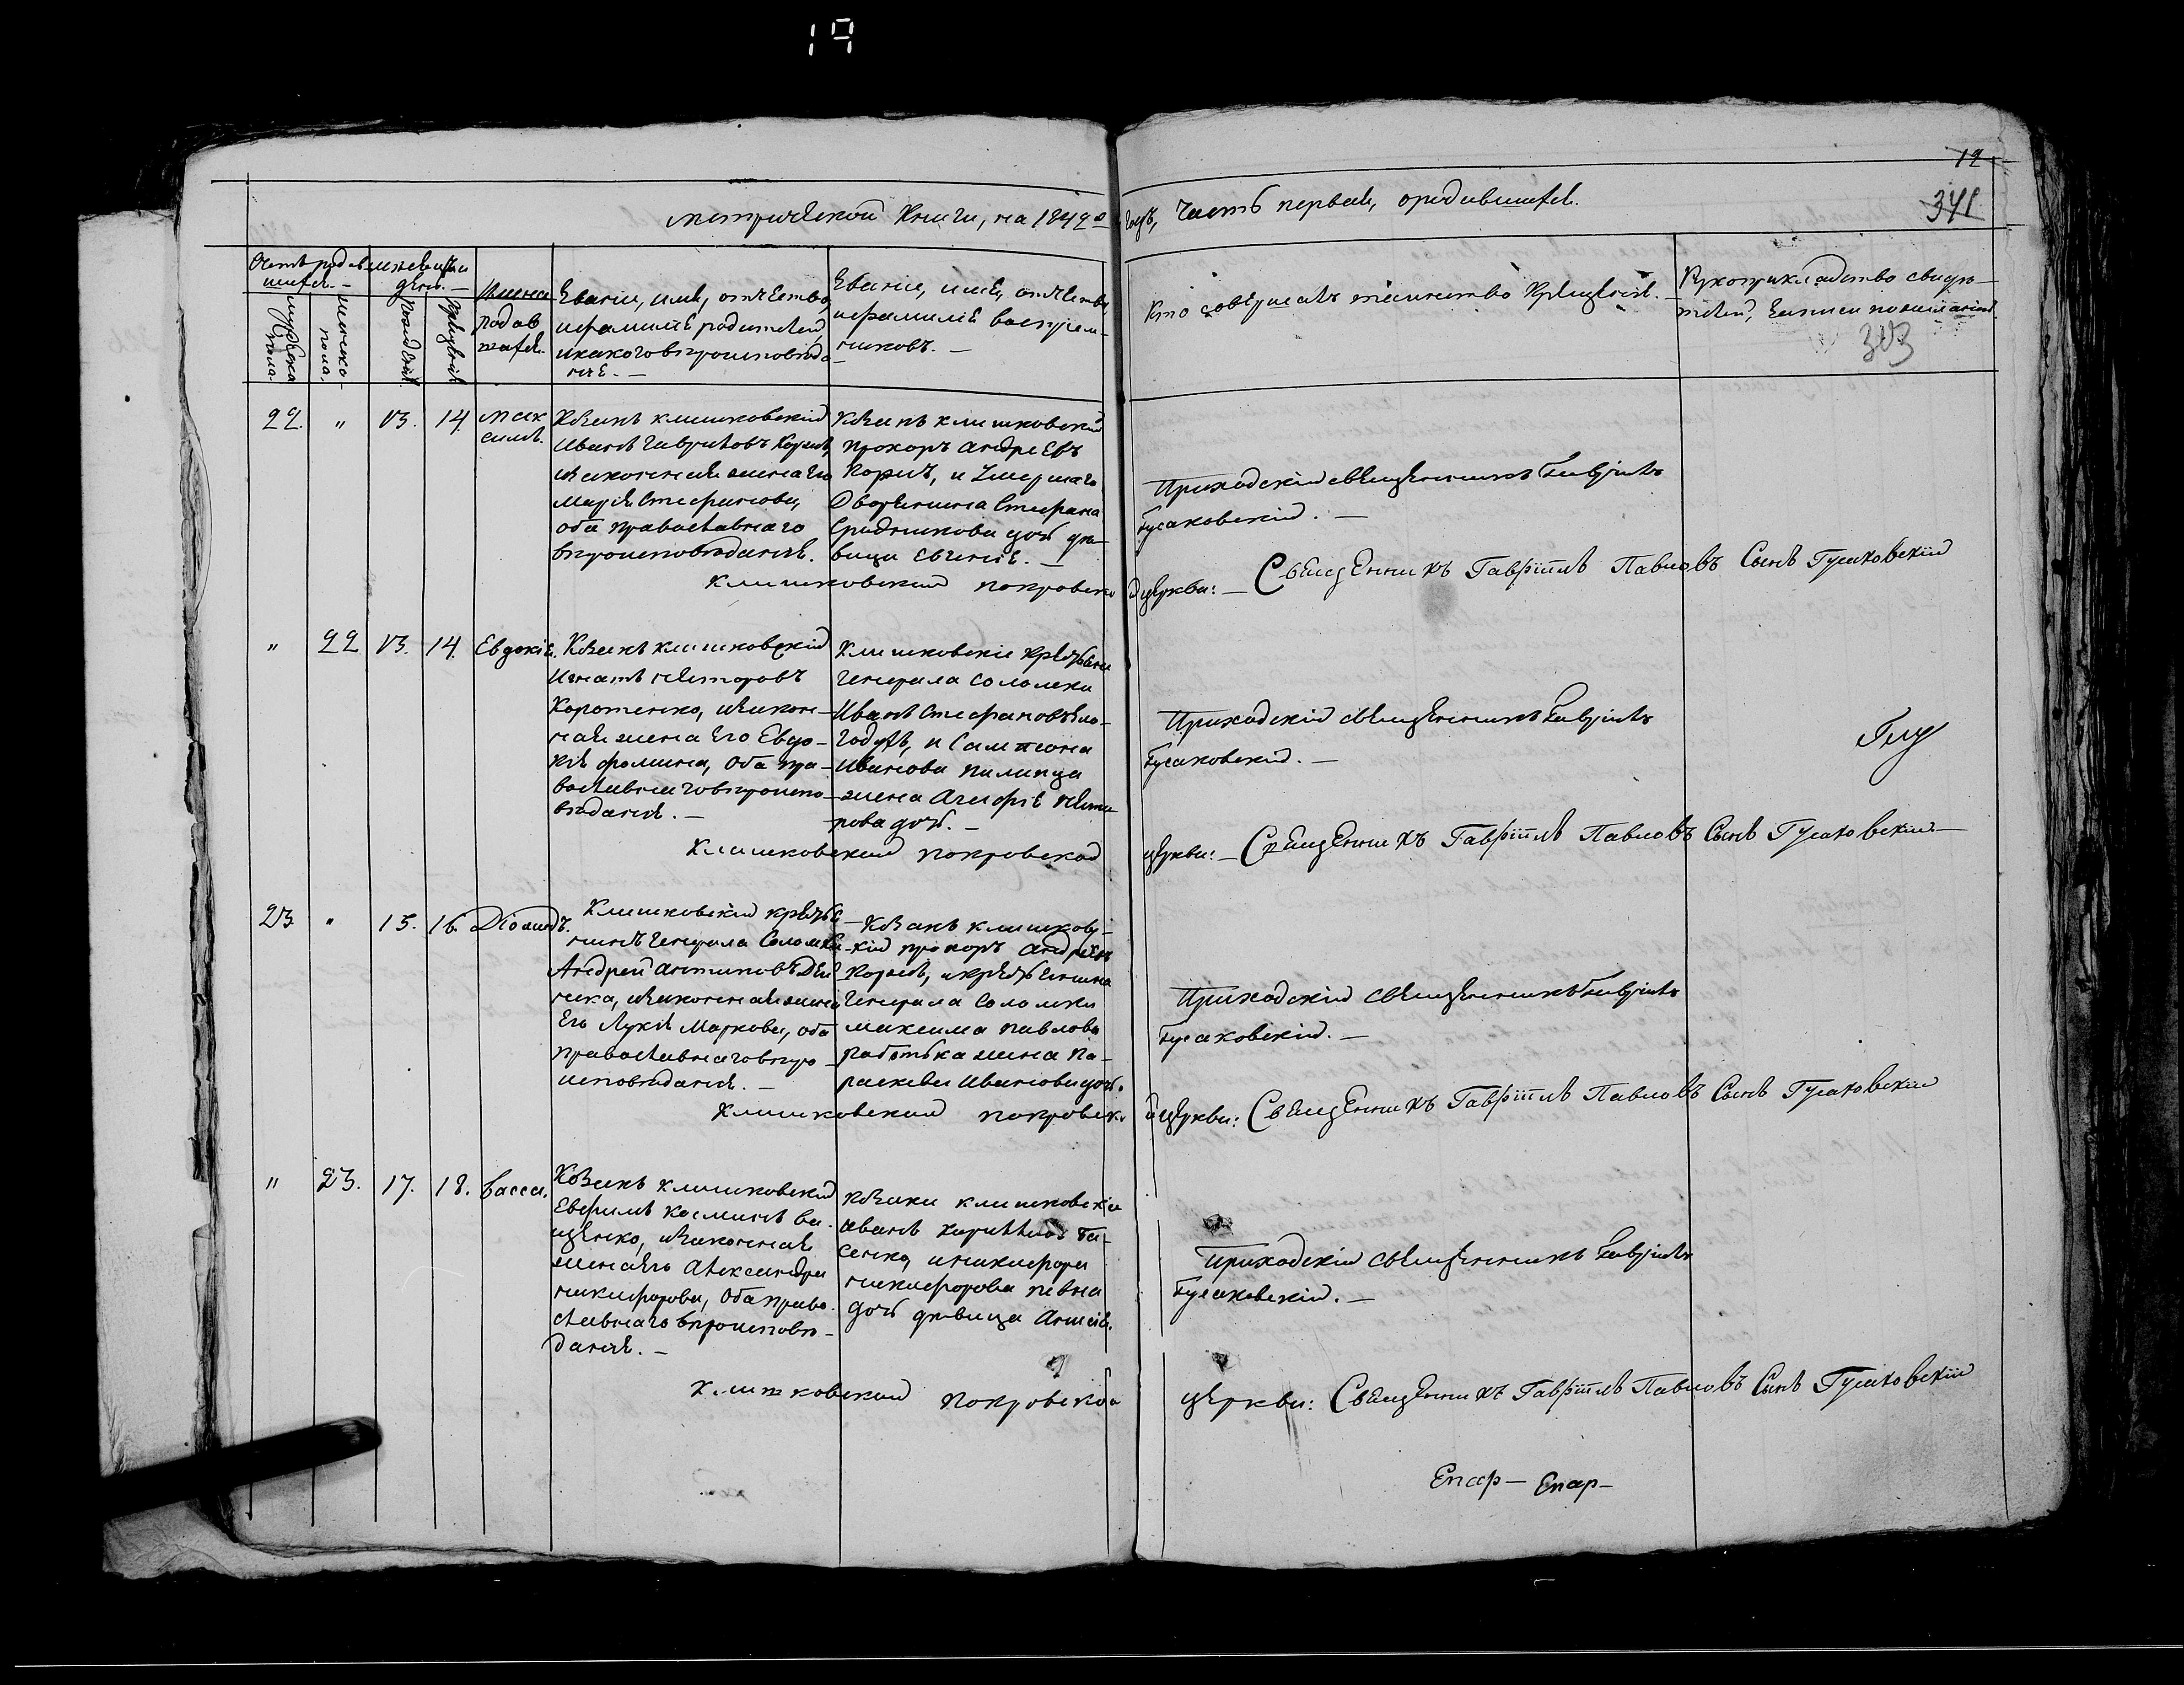 19
12
метрической Книги, на 1842й годъ, Часть первая, ородившихся.
341
Счетъ родив
шихся. —
мужеска
пола.
женска
пола.
Мѣсяцъ и
день. —
Рожденія
Крещенія
Имена
родив
шихся.
Званіе, имя, отчество,
ифамилія родителей,
икакоговѣроисповѣда
нія. —
Званіе, имя, отчество,
ифамилія воспріем-
никовъ. —
Кто совершалъ таинство Крещенія. —
Рукоприкладство свидѣ-
телей, записи пожеланію.
303
22. „ 13. 14. Мак
симъ.
Козакъ клишковскій
Иванъ Гавриловъ Коржъ,
изаконная женаего
Марія Стефанова,
оба православнаго
вѣроисповѣданія.
Козакъ клишковскій
Прохоръ Андреевъ
Коржъ, и умершаго
Дворянина Стефана
дочь дѣ-
вица Евгенія. —
Приходскій священникъ Гавріилъ
Гусаковскій. —
Клишковской покровской церкви: — Священникъ Гавріилъ Павловъ Сынъ Гусаковскій
„ 22 13. 14. Евдокія.
Козакъ клишковскій
Игнатъ несторовъ
Коротенко, изакон-
ная жена его Евдо-
кія фомина, оба пра-
вославнаговѣроиспо-
вѣданія. —
Клишковскіе крестьяне
генерала соломки
Иванъ Стефановъ
и Сампсона
Иванова пилипца
жена Агафія
дочь. —
Приходскій священникъ Гавріилъ
Гусаковскій. —
Клишковской покровской церкви: — Священникъ Гавріилъ Павловъ Сынъ Гусаковскій —
23 „ 15. 16. Діомидъ.
Клишковскій крестья
нинъ генерала Соломки
Андрей антиповъ
изаконная жена
Его Лукія Маркова, оба
православнаговѣро-
исповѣданія. —
Козакъ клишков-
скій прохоръ Андреевъ
Коржъ, икрестьянина
генерала соломки
максима павлова
жена Па-
раскева Иванова дочь.
Приходскій священникъ Гавріилъ
Гусаковскій. —
Клишковской покровской церкви: Священникъ Гавріилъ Павловъ Сынъ Гусаковскій
„ 23. 17. 18. Васса.
Козакъ клишковскій
Евфимъ Косминъ Ва-
щенко, изаконная
женаего Александра
никифорова, оба право-
славнаго вѣроисповѣ-
данія. —
козаки клишковскіе
иванъ Га-
сенко, иникифора
никифорова певна
дочь дѣвица Анисія.
Приходскій священникъ Гавріилъ
Гусаковскій. —
Клишковской покровской церкви: Священникъ Гавріилъ Павловъ Сынъ Гусаковскій
Епар — Епар —